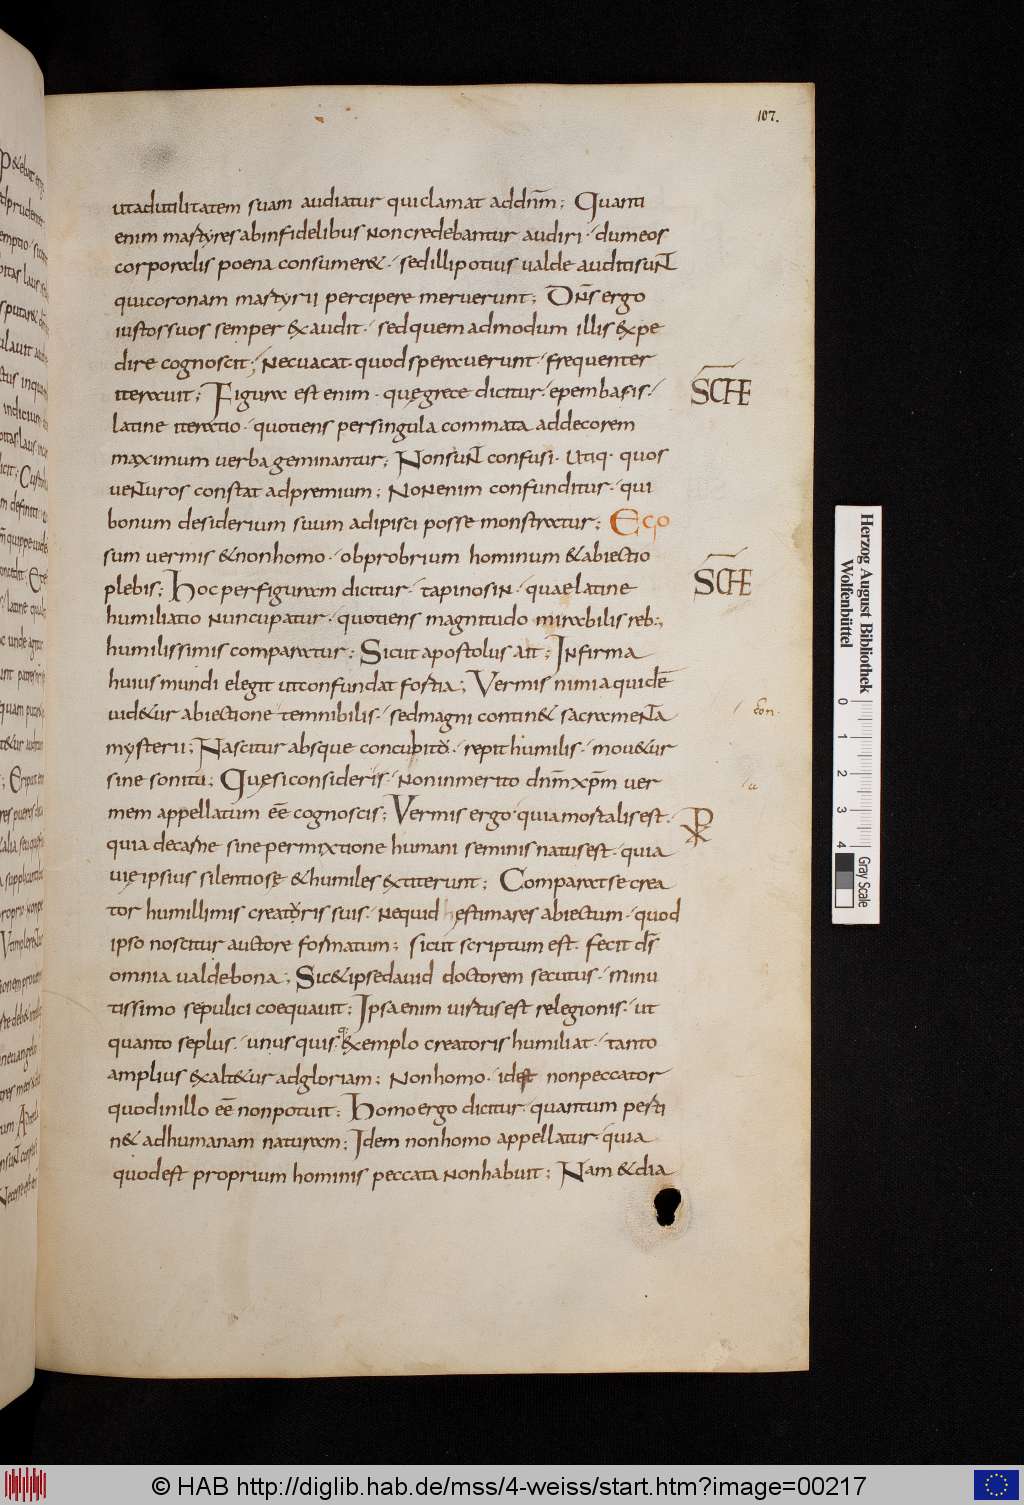 107.
utadutilitatem suam audiatur quiclamat addnm̄; Quanti
enim martyres abinfidelibus noncredebantur audiri· dumeos
corporalis poena consumer&· sedillipotius ualde auditisunt
quicoronam martyrii percipere meruerunt; Dn̄s ergo
iustossuos semper exaudit· sedquemadmodum illis expe
dire cognoscit· necuacat quodsperauerunt· frequenter
iterauit; Figura est enim· quęgrece dicitur· epembasis·
SCHE
latine iteratio· quotiens persingula commata addecorem
maximum uerba geminantur; Nonsunt confusi· Utiq· quos
uenturos constat adpremium; Nonenim confunditur· qui
bonum desiderium suum adipisci posse monstratur; Ego
sum uermis &nonhomo· obprobrium hominum &abiectio
plebis; Hoc perfiguram dicitur· tapinosin· quaelatine
SCHE
humiliatio nuncupatur· quotiens magnitudo mirabilis reb;,
humilissimis comparatur; Sicut apostolus ait; Infirma
huius mundi elegit utconfundat fortia; Vermis nimia quidē
uid&ur abiectione temnibilis· sedmagni contin& sacramenta
con·
mysterii; Nascitur absque concupito· repit humilis· mou&ur
sine sonitu; Quęsiconsideris· noninmerito dnm̄ xpm̄ uer
u
mem appellatum eē cognoscis; Vermis ergo· quia mortalis est·
quia decarne sine permixtione humani seminis natusest· quia
uięipsius silentiosę &humiles extiterunt; Comparat se crea
tor humillimis creatoris suis· nequid hestimares abiectum· quod
ipso noscitur auctore formatum; sicut scriptum est· fecit ds̄
omnia ualde bona; Sic&ipsedauid doctorem secutus· minu
tissimo sepulici coequauit; Ipsaenim uirtus est relegionis· ut
quanto seplus· unus quis· exemplo creatoris humiliat· tanto
amplius exalt&ur adgloriam; Nonhomo· idest nonpeccator
quodinillo eē nonpotuit; Homo ergo dicitur· quantum perti
n& adhumanam naturam; Idem nonhomo appellatur· quia
quodest proprium hominis peccata nonhabuit; Nam &dia
Herzog August Bibliothek
Wolfenbüttel
0 1 2 3 4
Gray Scale
© HAB http://diglib.hab.de/mss/4-weiss/start.htm?image=00217